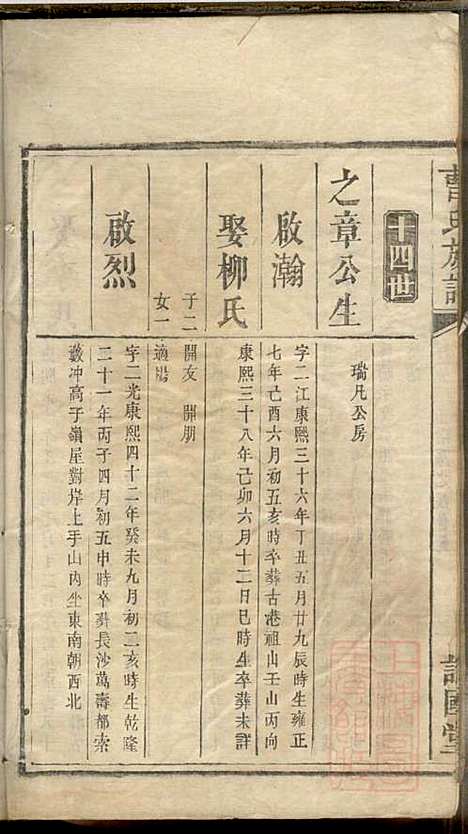 曹氏族譜
十四世
瑞凡公房
之章公生
啟瀚
字二江康熙三十六年丁丑五月廿九辰時生雍正
七年己酉六月初五亥時卒葬古港祖山壬山丙向
娶柳氏
康熙三十八年己卯六月十二日巳時生卒葬未詳
子二
開友 開朋
女一
適
啟烈
字二光康熙四十二年癸未九月初二亥時生乾隆
二十一年丙子四月初五申時卒葬長沙萬壽都索
數冲高子嶺屋對岸上手山內坐東南朝西北